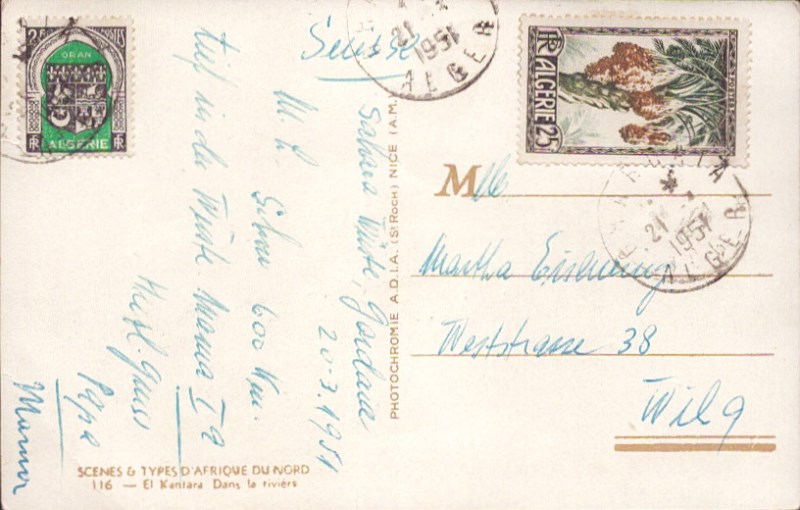 ORAN
ALGERIE
RF
RF
Suisse
Sahara Wüste, Gardaia
20-3.1951
M. L. Schon 600 Km.
tief in der Wüste. Mama Ia
Herzl. Gruss
Papa
Mamor
SCENES & TYPES D'AFRIQUE DU NORD
116 — El Kantara Dans la rivière
PHOTOCHROMIE A.D.I.A. (St ROCH) NICE (A.M.)
21
1951
ALGER
RF ALGERIE 25
GHARDAIA
21
1951
ALGER
Mlle
Martha
Weststrasse 38
Wila